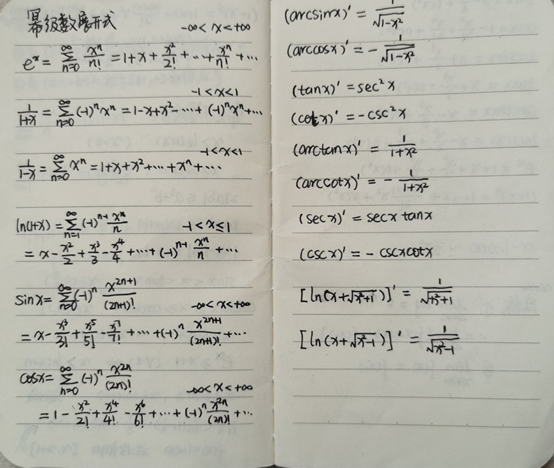 幂级数展开式
-∞<x<+∞
e^x = ∑_{n=0}^{∞} x^n/n! = 1+x+x²/2!+⋯+x^n/n!+⋯
-1<x<1
1/(1+x) = ∑_{n=0}^{∞} (-1)^n x^n = 1-x+x²-⋯+(-1)^n x^n+⋯
-1<x<1
1/(1-x) = ∑_{n=0}^{∞} x^n = 1+x+x²+⋯+x^n+⋯
ln(1+x) = ∑_{n=1}^{∞} (-1)^{n-1} x^n/n -1<x≤1
= x - x²/2 + x³/3 - x⁴/4 +⋯+ (-1)^{n-1} x^n/n +⋯
sin x = ∑_{n=0}^{∞} (-1)^n x^{2n+1}/(2n+1)! -∞<x<+∞
= x - x³/3! + x⁵/5! - x⁷/7! +⋯+ (-1)^n x^{2n+1}/(2n+1)! +⋯
cos x = ∑_{n=0}^{∞} (-1)^n x^{2n}/(2n)! -∞<x<+∞
= 1 - x²/2! + x⁴/4! - x⁶/6! +⋯+ (-1)^n x^{2n}/(2n)! +⋯
(arcsinx)' = 1/√(1-x²)
(arccosx)' = - 1/√(1-x²)
(tanx)' = sec²x
(cotx)' = -csc²x
(arctanx)' = 1/(1+x²)
(arccotx)' = - 1/(1+x²)
(secx)' = secx tanx
(cscx)' = - cscxcotx
[ln(x+√(x²+1))]' = 1/√(x²+1)
[ln(x+√(x²-1))]' = 1/√(x²-1)